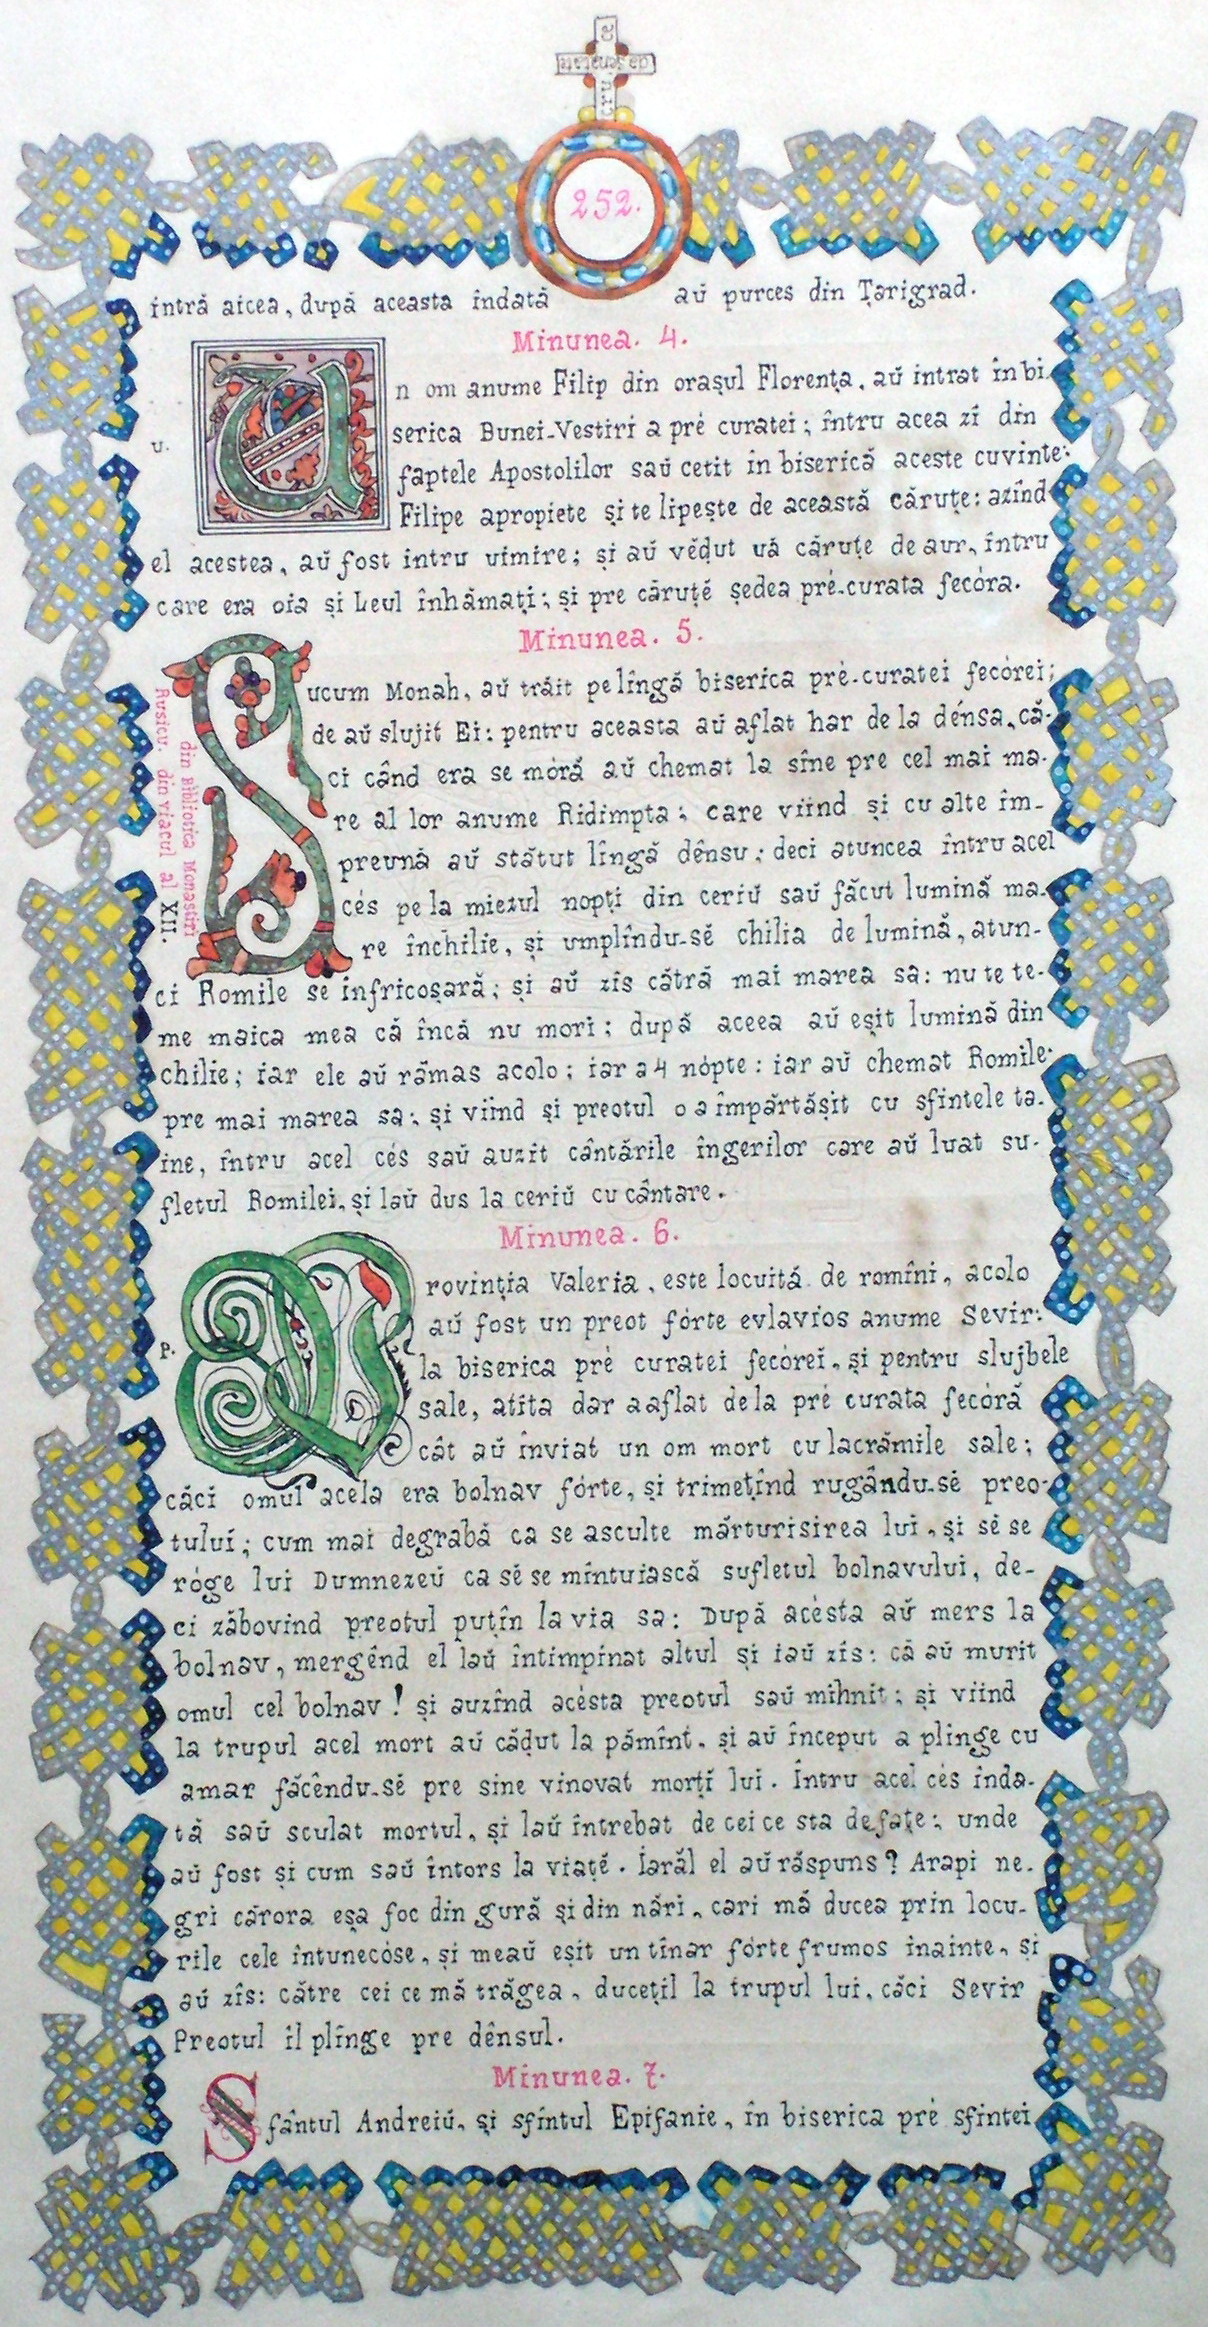 ce
da Sfnetata
cru
252.
intră aicea, după aceasta îndată aŭ purces din Țarigrad.
Minunea. 4.
Un om anume Filip din orașul Florența, aŭ intrat în bi-
u.
serica Bunei-Vestiri a pré curatei; întru acea zi din
faptele Apostolilor saŭ cetit în biserică aceste cuvinte:
Filipe apropiete și te lipește de această căruțe: azînd
el acestea, aŭ fost intru uimire; și aŭ vĕḑut uă căruțe de aur, întru
care era oia și Leul înhămați; și pre căruțĕ ședea pré-curata fecóra.
Minunea. 5.
Sucum Monah, aŭ trăit pe lîngă biserica pré-curatei fecórei;
de aŭ slujit Ei: pentru aceasta aŭ aflat har de la dénsa, că-
ci când era se móră aŭ chemat la sîne pre cel mai ma-
re al lor anume Ridimpta; care viind și cu alte îm-
preună aŭ stătut lîngă dênsu; deci atuncea întru acel
cés pe la miezul nopți din ceriŭ saŭ făcut lumină ma-
re închilie, și umplîndu-sĕ chilia de lumină, atun-
ci Romile se înfricoșară; și aŭ zis cătră mai marea sa: nu te te-
me maica mea că încă nu mori; după aceea aŭ eșit lumină din
chilie; iar ele aŭ rămas acolo; iar a 4 nópte: iar aŭ chemat Romile
pre mai marea sa; și viind și preotul o a împărtășit cu sfintele ta-
ine, întru acel cés saŭ auzit cântările îngerilor care aŭ luat su-
fletul Romilei, și laŭ dus la ceriŭ cu cântare.
din Bibliotica Monastiri
Rusicu. din viacul al XII.
Minunea. 6.
Provinția Valeria, este locuită de romîni, acolo
aŭ fost un preot fórte evlavios anume Sevir:
p.
la biserica pré curatei fecórei, și pentru slujbele
sale, atîta dar a aflat de la pré curata fecóră
cât aŭ înviat un om mort cu lacrămile sale;
căci omul acela era bolnav fórte, și trimețînd rugându-sĕ preo-
tului; cum mai degrabă ca se asculte mărturisirea lui, și sĕ se
róge lui Dumnezeŭ ca sĕ se mîntuiască sufletul bolnavului, de-
ci zăbovind preotul puțîn la via sa: După acésta aŭ mers la
bolnav, mergênd el laŭ întimpinat altul și iaŭ zis: că aŭ murit
omul cel bolnav! și auzînd acésta preotul saŭ mihnit; și viind
la trupul acel mort aŭ căḑut la pămînt, și aŭ început a plînge cu
amar făcêndu-sĕ pre sine vinovat morți lui. Întru acel cés înda-
tă saŭ sculat mortul, și laŭ întrebat de cei ce sta de fațe; unde
aŭ fost și cum saŭ întors la viațĕ. Iarăl el aŭ răspuns? Arapi ne-
gri cărora eșa foc din gură și din nări, cari mă ducea prin locu-
rile cele întunecóse, și meaŭ eșit un tînar fórte frumos înainte, și
aŭ zîs: către cei ce mă trăgea, ducețil la trupul lui, căci Sevir
Preotul îl plînge pre dênsul.
Minunea. 7.
Sfântul Andreiŭ, și sfîntul Epifanie, în biserica pré sfintei